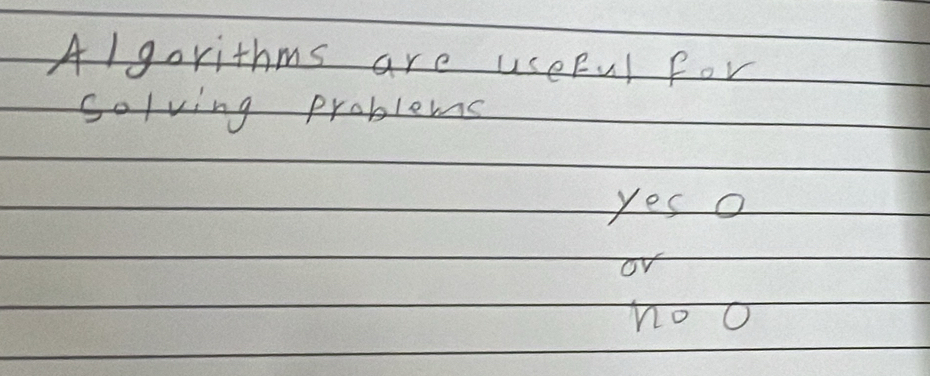 Algorithms are useful for
solving problems
yes O
or
no O